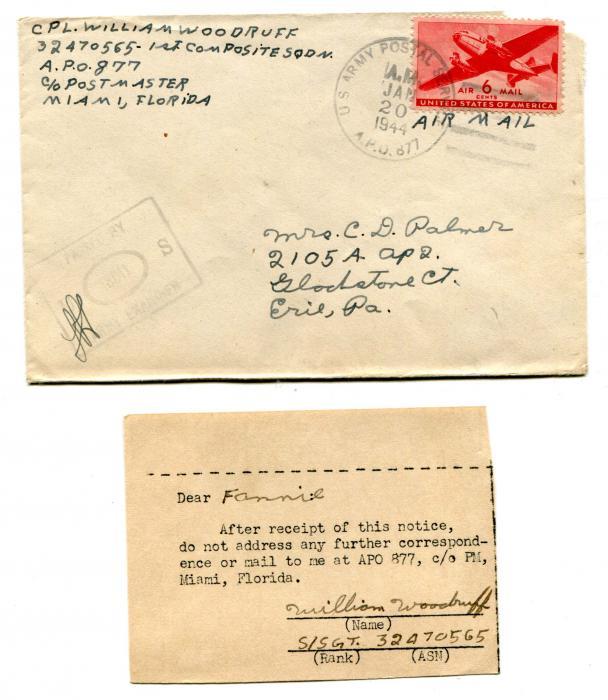 CPL. WILLIAM WOODRUFF
32470565-1st COMPOSITE SQDN.
A.P.O. 877
C/O POSTMASTER
MIAMI, FLORIDA
U.S. ARMY POSTAL SER
A.M.
JAN
20
1944
A.P.O. 877
AIR 6 MAIL
CENTS
UNITED STATES OF AMERICA
AIR MAIL
Mrs. C. D. Palmer
2105 A apt.
Gladstone Ct.
Erie, Pa.
BY
S
Dear Fannie
After receipt of this notice,
do not address any further correspond-
ence or mail to me at APO 877, c/o PM,
Miami, Florida.
William Woodruff
(Name)
S/SGT. 32470565
(Rank) (ASN)